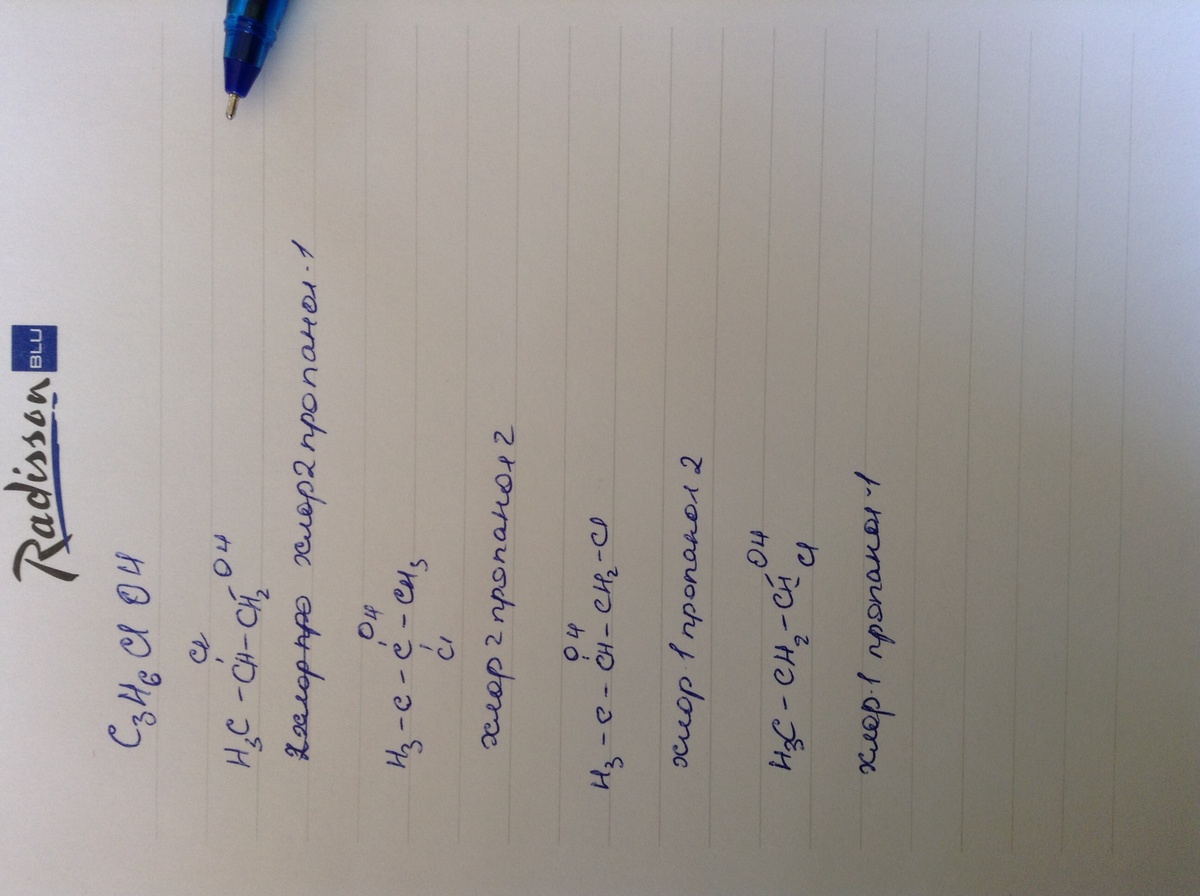 Radisson BLU
C₃H₆ClOH
Cl
H₃C-CH-CH₂
OH
хлорпро хлор2пропанол-1
OH
H₃-C-C-CH₃
Cl
хлор2пропанол2
OH
H₃-C-CH-CH₂-Cl
хлор-1пропанол2
OH
H₃C-CH₂-CH
Cl
хлор-1пропанол-1